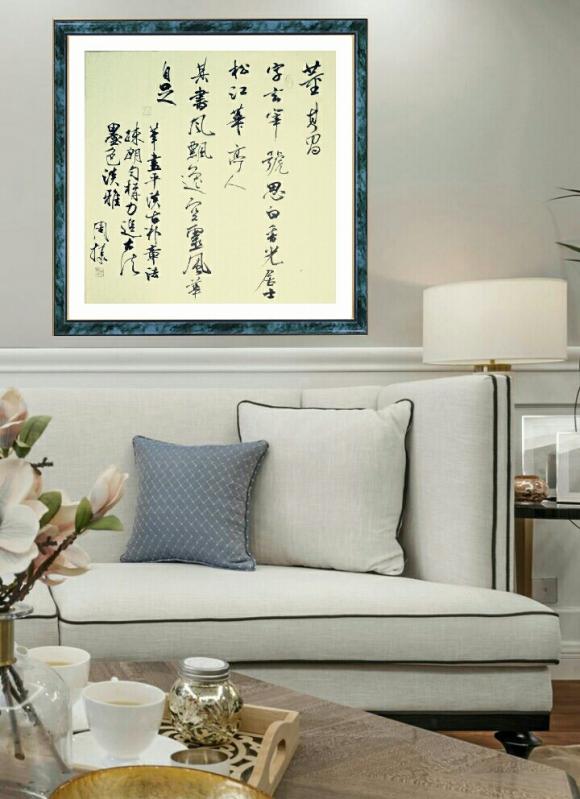 董其昌
字玄宰號思白香光居士
松江華亭人
其書風飄逸空靈風華
自足
筆畫平淡古朴章法
疎朗匀稱力追古法
墨色淡雅
周